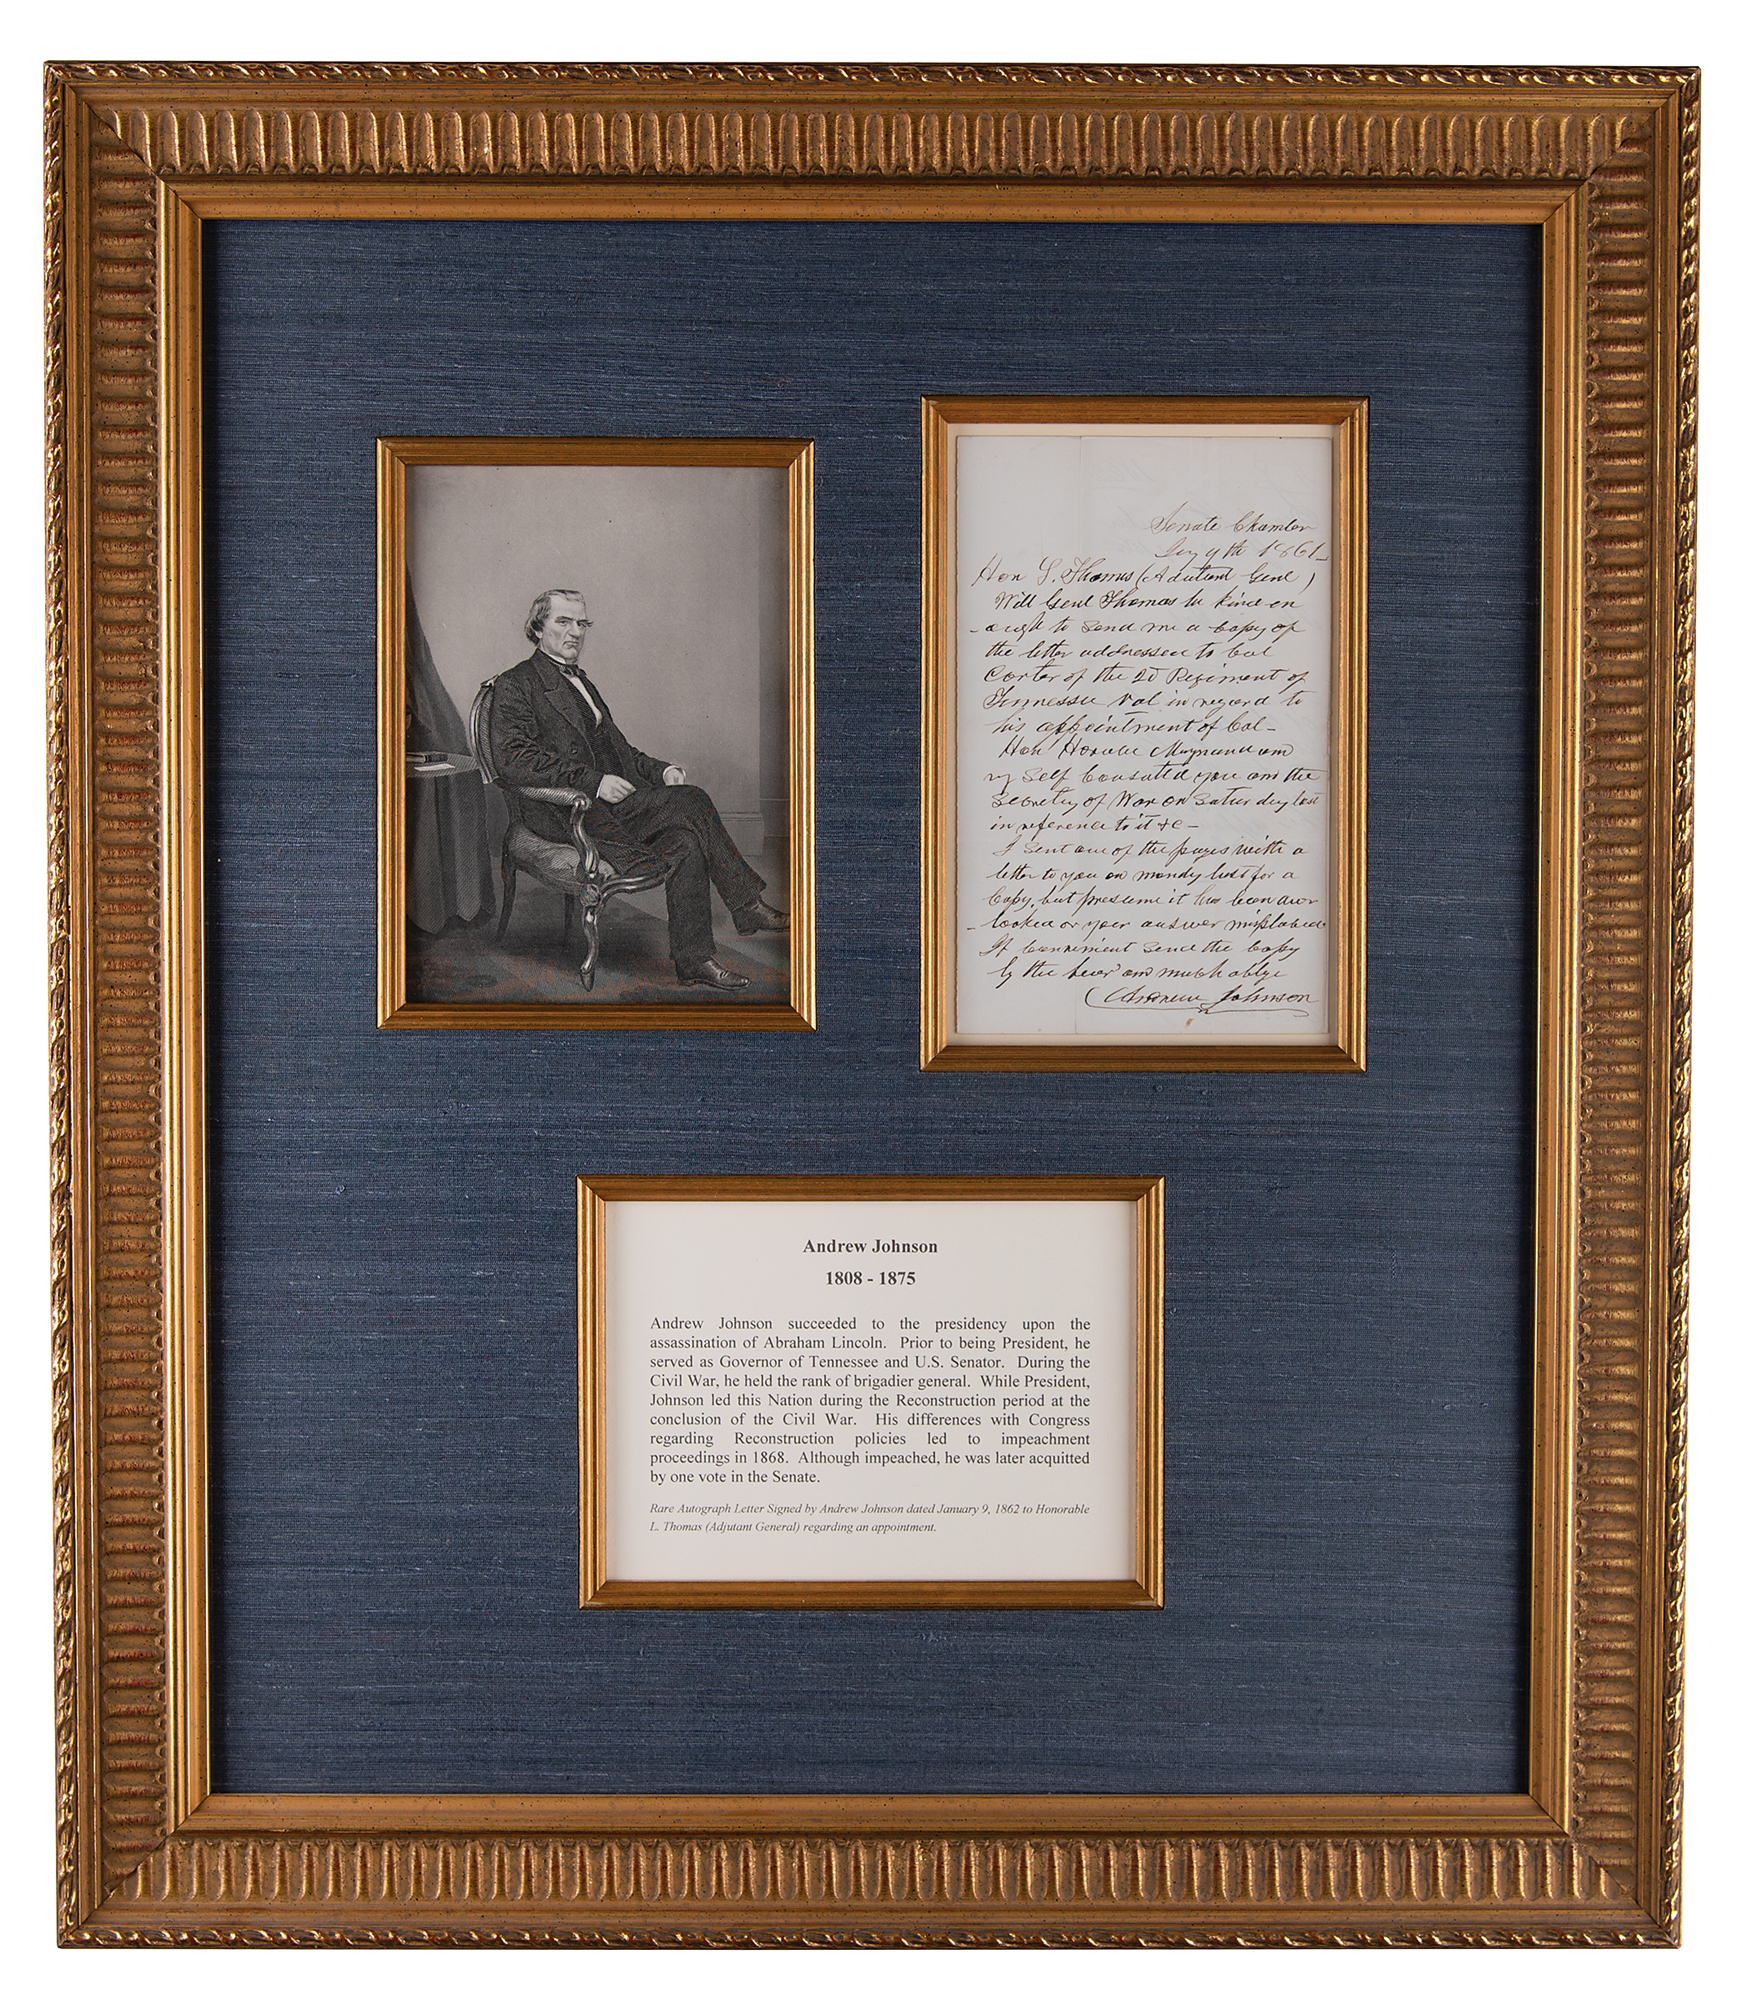 Senate Chamber
Jany 9th 1861
Hon L. Thomas (Adutant Genl)
Will Genl Thomas be kind en
-ough to send me a Copy of
the letter addressed to Col
Carter of the 2d Regiment of
Tennessee Vol in regard to
his appointment of Col-
Hon Horace Maynard and
my self Consulted you and the
Secretary of War on Saturday last
in reference to it &c-
I sent one of the pages with a
letter to you on Monday last for a
Copy, but presume it has been over
-looked or your answer misplaced
If Convenient send the Copy
by the and much oblige
Andrew Johnson
Andrew Johnson
1808 - 1875
Andrew Johnson succeeded to the presidency upon the
assassination of Abraham Lincoln. Prior to being President, he
served as Governor of Tennessee and U.S. Senator. During the
Civil War, he held the rank of brigadier general. While President,
Johnson led this Nation during the Reconstruction period at the
conclusion of the Civil War. His differences with Congress
regarding Reconstruction policies led to impeachment
proceedings in 1868. Although impeached, he was later acquitted
by one vote in the Senate.
Rare Autograph Letter Signed by Andrew Johnson dated January 9, 1862 to Honorable
L. Thomas (Adjutant General) regarding an appointment.